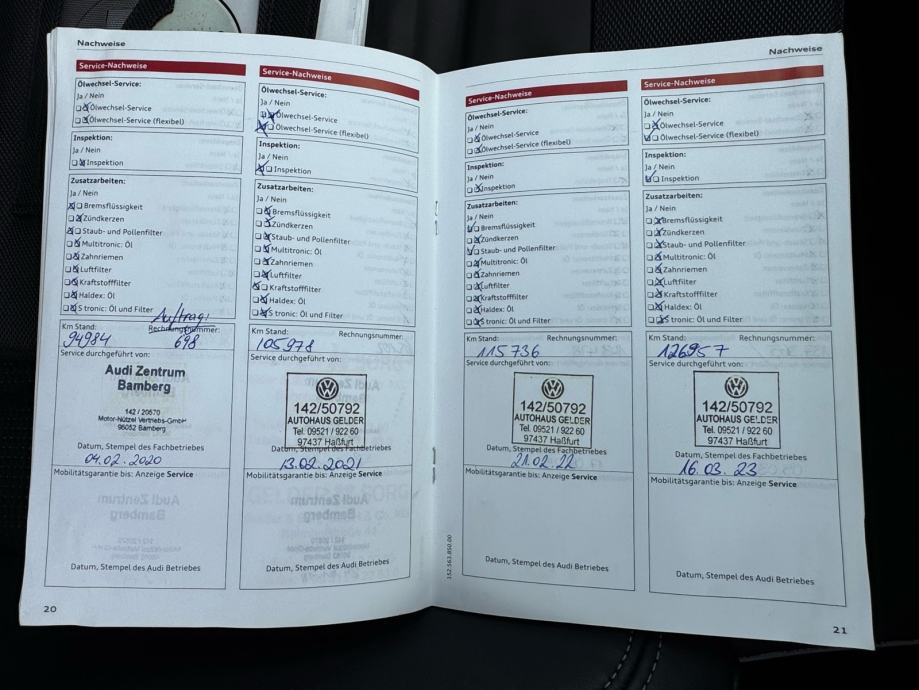 Nachweise
Service-Nachweise
Ölwechsel-Service:
Ja / Nein
Ölwechsel-Service
Ölwechsel-Service (flexibel)
Inspektion:
Ja / Nein
Inspektion
Zusatzarbeiten:
Ja / Nein
Bremsflüssigkeit
Zündkerzen
Staub- und Pollenfilter
Multitronic: Öl
Zahnriemen
Luftfilter
Kraftstofffilter
Haldex: Öl
S tronic: Öl und Filter
Auftrags
Km Stand: Rechnungsnummer:
94984 698
Service durchgeführt von:
Audi Zentrum
Bamberg
142 / 20670
Motor-Nützel Vertriebs-GmbH
96052 Bamberg
Datum, Stempel des Fachbetriebes
04.02.2020
Mobilitätsgarantie bis: Anzeige Service
Datum, Stempel des Audi Betriebes
20
Service-Nachweise
Ölwechsel-Service:
Ja / Nein
Ölwechsel-Service
Ölwechsel-Service (flexibel)
Inspektion:
Ja / Nein
Inspektion
Zusatzarbeiten:
Ja / Nein
Bremsflüssigkeit
Zündkerzen
Staub- und Pollenfilter
Multitronic: Öl
Zahnriemen
Luftfilter
Kraftstofffilter
Haldex: Öl
S tronic: Öl und Filter
Km Stand: Rechnungsnummer:
105978
Service durchgeführt von:
142/50792
AUTOHAUS GELDER
Tel. 09521 / 922 60
97437 Haßfurt
Datum, Stempel des Fachbetriebes
13.02.2021
Mobilitätsgarantie bis: Anzeige Service
Datum, Stempel des Audi Betriebes
152.563.850.00
Nachweise
Service-Nachweise
Ölwechsel-Service:
Ja / Nein
Ölwechsel-Service
Ölwechsel-Service (flexibel)
Inspektion:
Ja / Nein
Inspektion
Zusatzarbeiten:
Ja / Nein
Bremsflüssigkeit
Zündkerzen
Staub- und Pollenfilter
Multitronic: Öl
Zahnriemen
Luftfilter
Kraftstofffilter
Haldex: Öl
S tronic: Öl und Filter
Km Stand: Rechnungsnummer:
115736
Service durchgeführt von:
142/50792
AUTOHAUS GELDER
Tel. 09521 / 922 60
97437 Haßfurt
Datum, Stempel des Fachbetriebes
21.02.22
Mobilitätsgarantie bis: Anzeige Service
Datum, Stempel des Audi Betriebes
Service-Nachweise
Ölwechsel-Service:
Ja / Nein
Ölwechsel-Service
Ölwechsel-Service (flexibel)
Inspektion:
Ja / Nein
Inspektion
Zusatzarbeiten:
Ja / Nein
Bremsflüssigkeit
Zündkerzen
Staub- und Pollenfilter
Multitronic: Öl
Zahnriemen
Luftfilter
Kraftstofffilter
Haldex: Öl
S tronic: Öl und Filter
Km Stand: Rechnungsnummer:
126957
Service durchgeführt von:
142/50792
AUTOHAUS GELDER
Tel. 09521 / 922 60
97437 Haßfurt
Datum, Stempel des Fachbetriebes
16.03.23
Mobilitätsgarantie bis: Anzeige Service
Datum, Stempel des Audi Betriebes
21